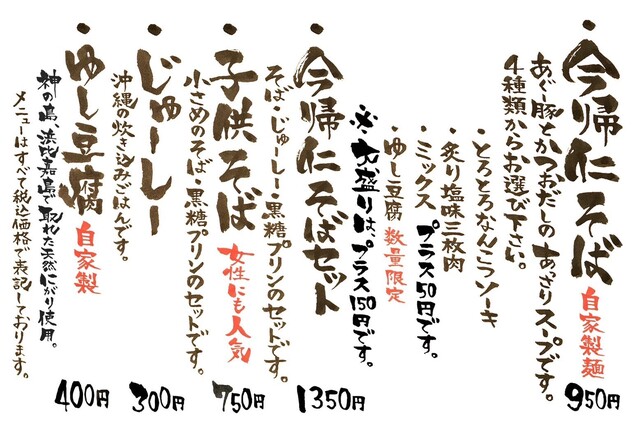 ・今帰仁そば 自家製麺 950円
あぐー豚とかつおだしのあっさりスープです。
4種類からお選び下さい。
・とろとろなんこつソーキ
・炙り塩味三枚肉
・ミックス プラス50円です。
・ゆし豆腐 数量限定
※大盛りは、プラス150円です。
・今帰仁そばセット 1350円
そば・じゅーしー・黒糖プリンのセットです。
・子供そば 女性にも人気 750円
小さめのそば・黒糖プリンのセットです。
・じゅーしー 300円
沖縄の炊き込みごはんです。
・ゆし豆腐 自家製 400円
神の島、浜比嘉島で取れた天然にがり使用。
メニューはすべて税込価格で表記しております。